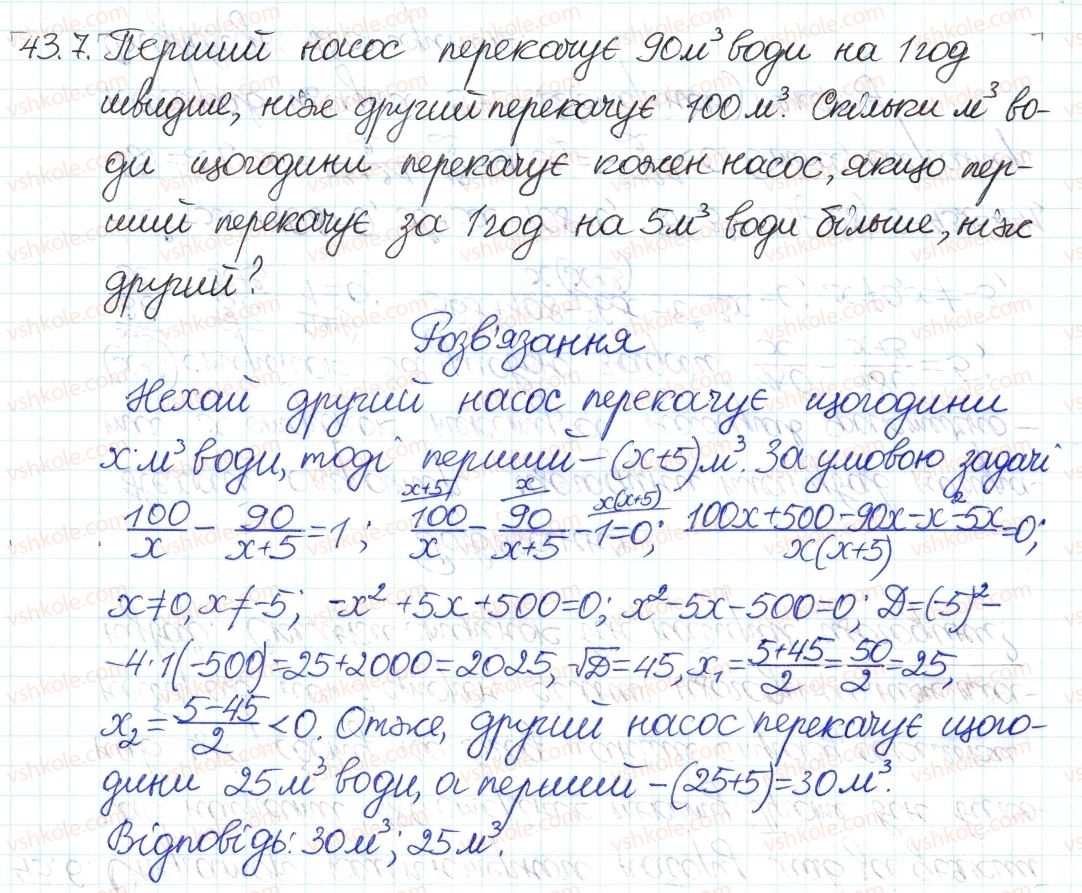 43.7. Перший насос перекачує 90м³ води на 1год
швидше, ніж другий перекачує 100 м³. Скільки м³ во-
ди щогодини перекачує кожен насос, якщо пер-
ший перекачує за 1год на 5м³ води більше, ніж
другий?
Розв'язання
Нехай другий насос перекачує щогодини
x м³ води, тоді перший – (x+5) м³. За умовою задачі
100/x − 90/(x+5) = 1; 100/x (x+5) − 90/(x+5) (x) − 1 (x(x+5)) = 0; (100x+500−90x−x²−5x)/(x(x+5)) = 0;
x≠0, x≠-5; -x²+5x+500=0; x²-5x-500=0; D=(-5)²-
-4·1(-500)=25+2000=2025, √D=45, x₁=(5+45)/2=50/2=25,
x₂=(5-45)/2<0. Отже, другий насос перекачує щого-
дини 25м³ води, а перший – (25+5)=30м³.
Відповідь: 30м³; 25м³.